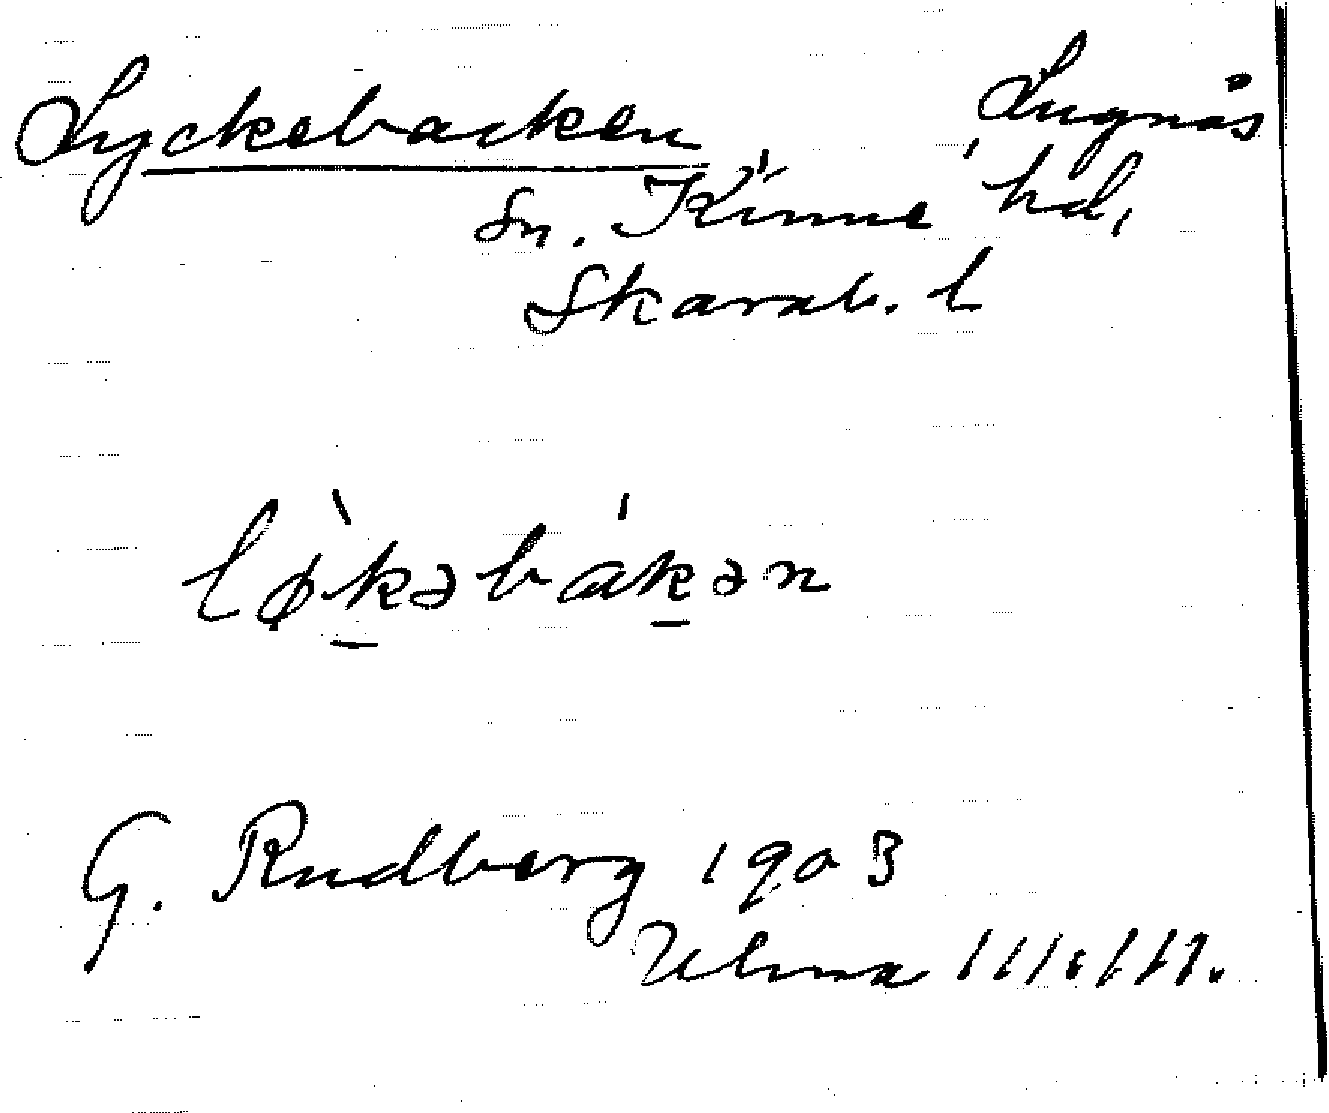 Lyckebacken Lugnås
sn. Kinne hd,
Skarab. l
l ø̀kəbákən
G. Rudberg 1903
Ulma 111:111.